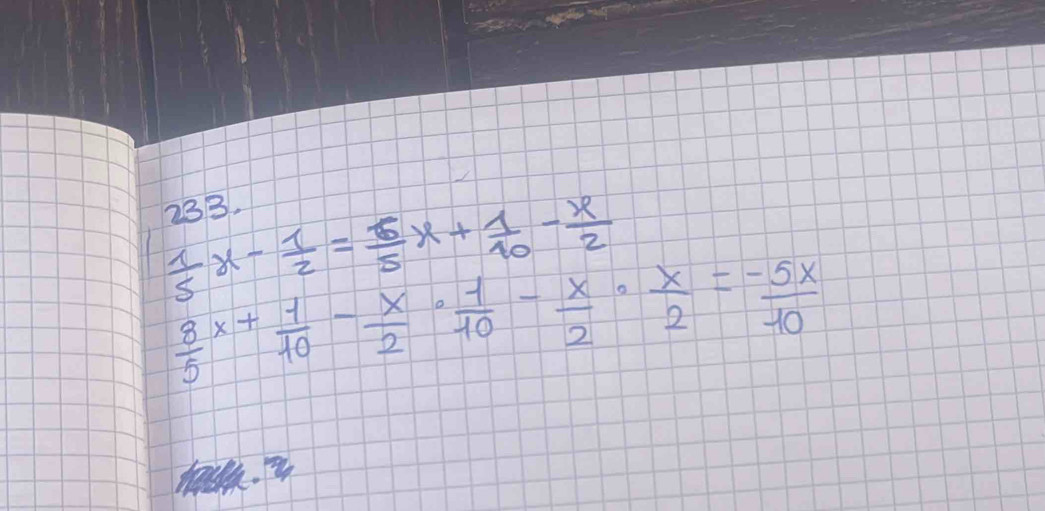 233.
1/5 x - 1/2 = 6/5 x + 1/10 - x/2
8/5 x + 1/10 - x/2 · 1/10 - x/2 · x/2 = -5x/10